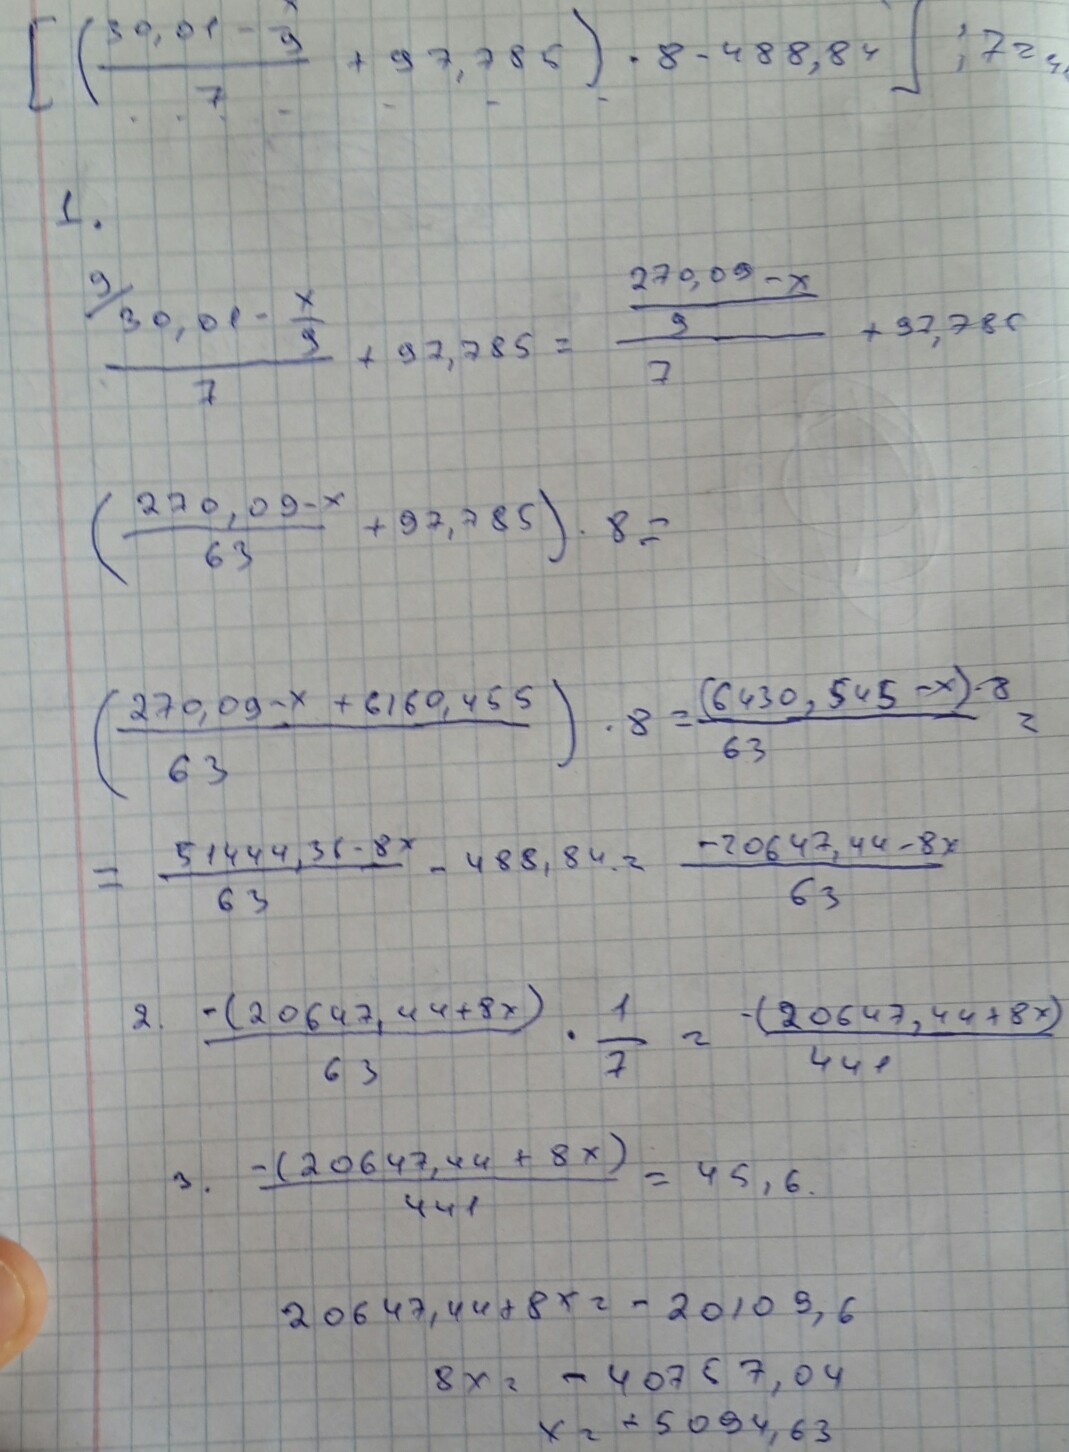 [((30,01 - x/9)/7 + 97,785) · 8 - 488,84] : 7 = 4
1.
9/ (30,01 - x/9)/7 + 97,785 = ((270,09 - x)/9)/7 + 97,785
((270,09 - x)/63 + 97,785) · 8 =
((270,09 - x + 6160,455)/63) · 8 = ((6430,545 - x) · 8)/63 =
= (51444,36 - 8x)/63 - 488,84 = (-20647,44 - 8x)/63
2. -(20647,44 + 8x)/63 · 1/7 = -(20647,44 + 8x)/441
3. -(20647,44 + 8x)/441 = 45,6.
20647,44 + 8x = - 20109,6
8x = - 40757,04
x = - 5094,63